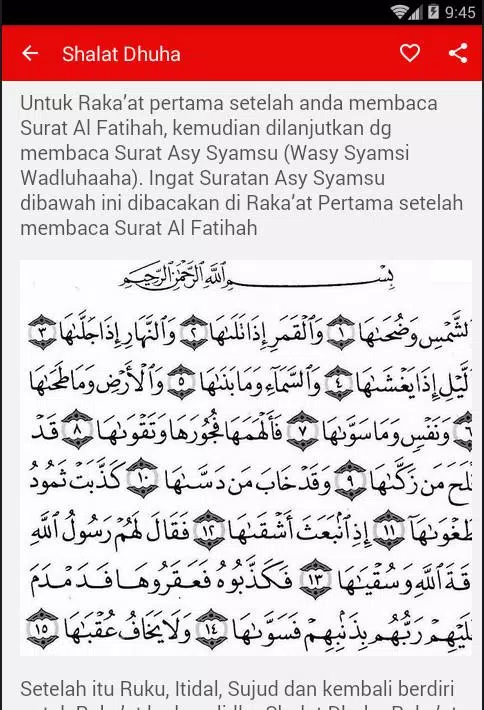 9:45
Shalat Dhuha
Untuk Raka’at pertama setelah anda membaca
Surat Al Fatihah, kemudian dilanjutkan dg
membaca Surat Asy Syamsu (Wasy Syamsi
Wadluhaaha). Ingat Suratan Asy Syamsu
dibawah ini dibacakan di Raka’at Pertama setelah
membaca Surat Al Fatihah
بِسْمِ اللَّهِ الرَّحْمَٰنِ الرَّحِيمِ
لشَّمْسِ وَضُحَىٰهَا ١ وَٱلْقَمَرِ إِذَا تَلَىٰهَا ٢ وَٱلنَّهَارِ إِذَا جَلَّىٰهَا ٣
لَّيْلِ إِذَا يَغْشَىٰهَا ٤ وَٱلسَّمَآءِ وَمَا بَنَىٰهَا ٥ وَٱلْأَرْضِ وَمَا طَحَىٰهَا
٦ وَنَفْسٍ وَمَا سَوَّىٰهَا ٧ فَأَلْهَمَهَا فُجُورَهَا وَتَقْوَىٰهَا ٨ قَدْ
لَحَ مَن زَكَّىٰهَا ٩ وَقَدْ خَابَ مَن دَسَّىٰهَا ١٠ كَذَّبَتْ ثَمُودُ
طَغْوَىٰهَآ ١١ إِذِ ٱنۢبَعَثَ أَشْقَىٰهَا ١٢ فَقَالَ لَهُمْ رَسُولُ ٱللَّهِ
قَةَ ٱللَّهِ وَسُقْيَٰهَا ١٣ فَكَذَّبُوهُ فَعَقَرُوهَا فَدَمْدَمَ
لَيْهِمْ رَبُّهُم بِذَنۢبِهِمْ فَسَوَّىٰهَا ١٤ وَلَا يَخَافُ عُقْبَٰهَا ١٥
Setelah itu Ruku, Itidal, Sujud dan kembali berdiri